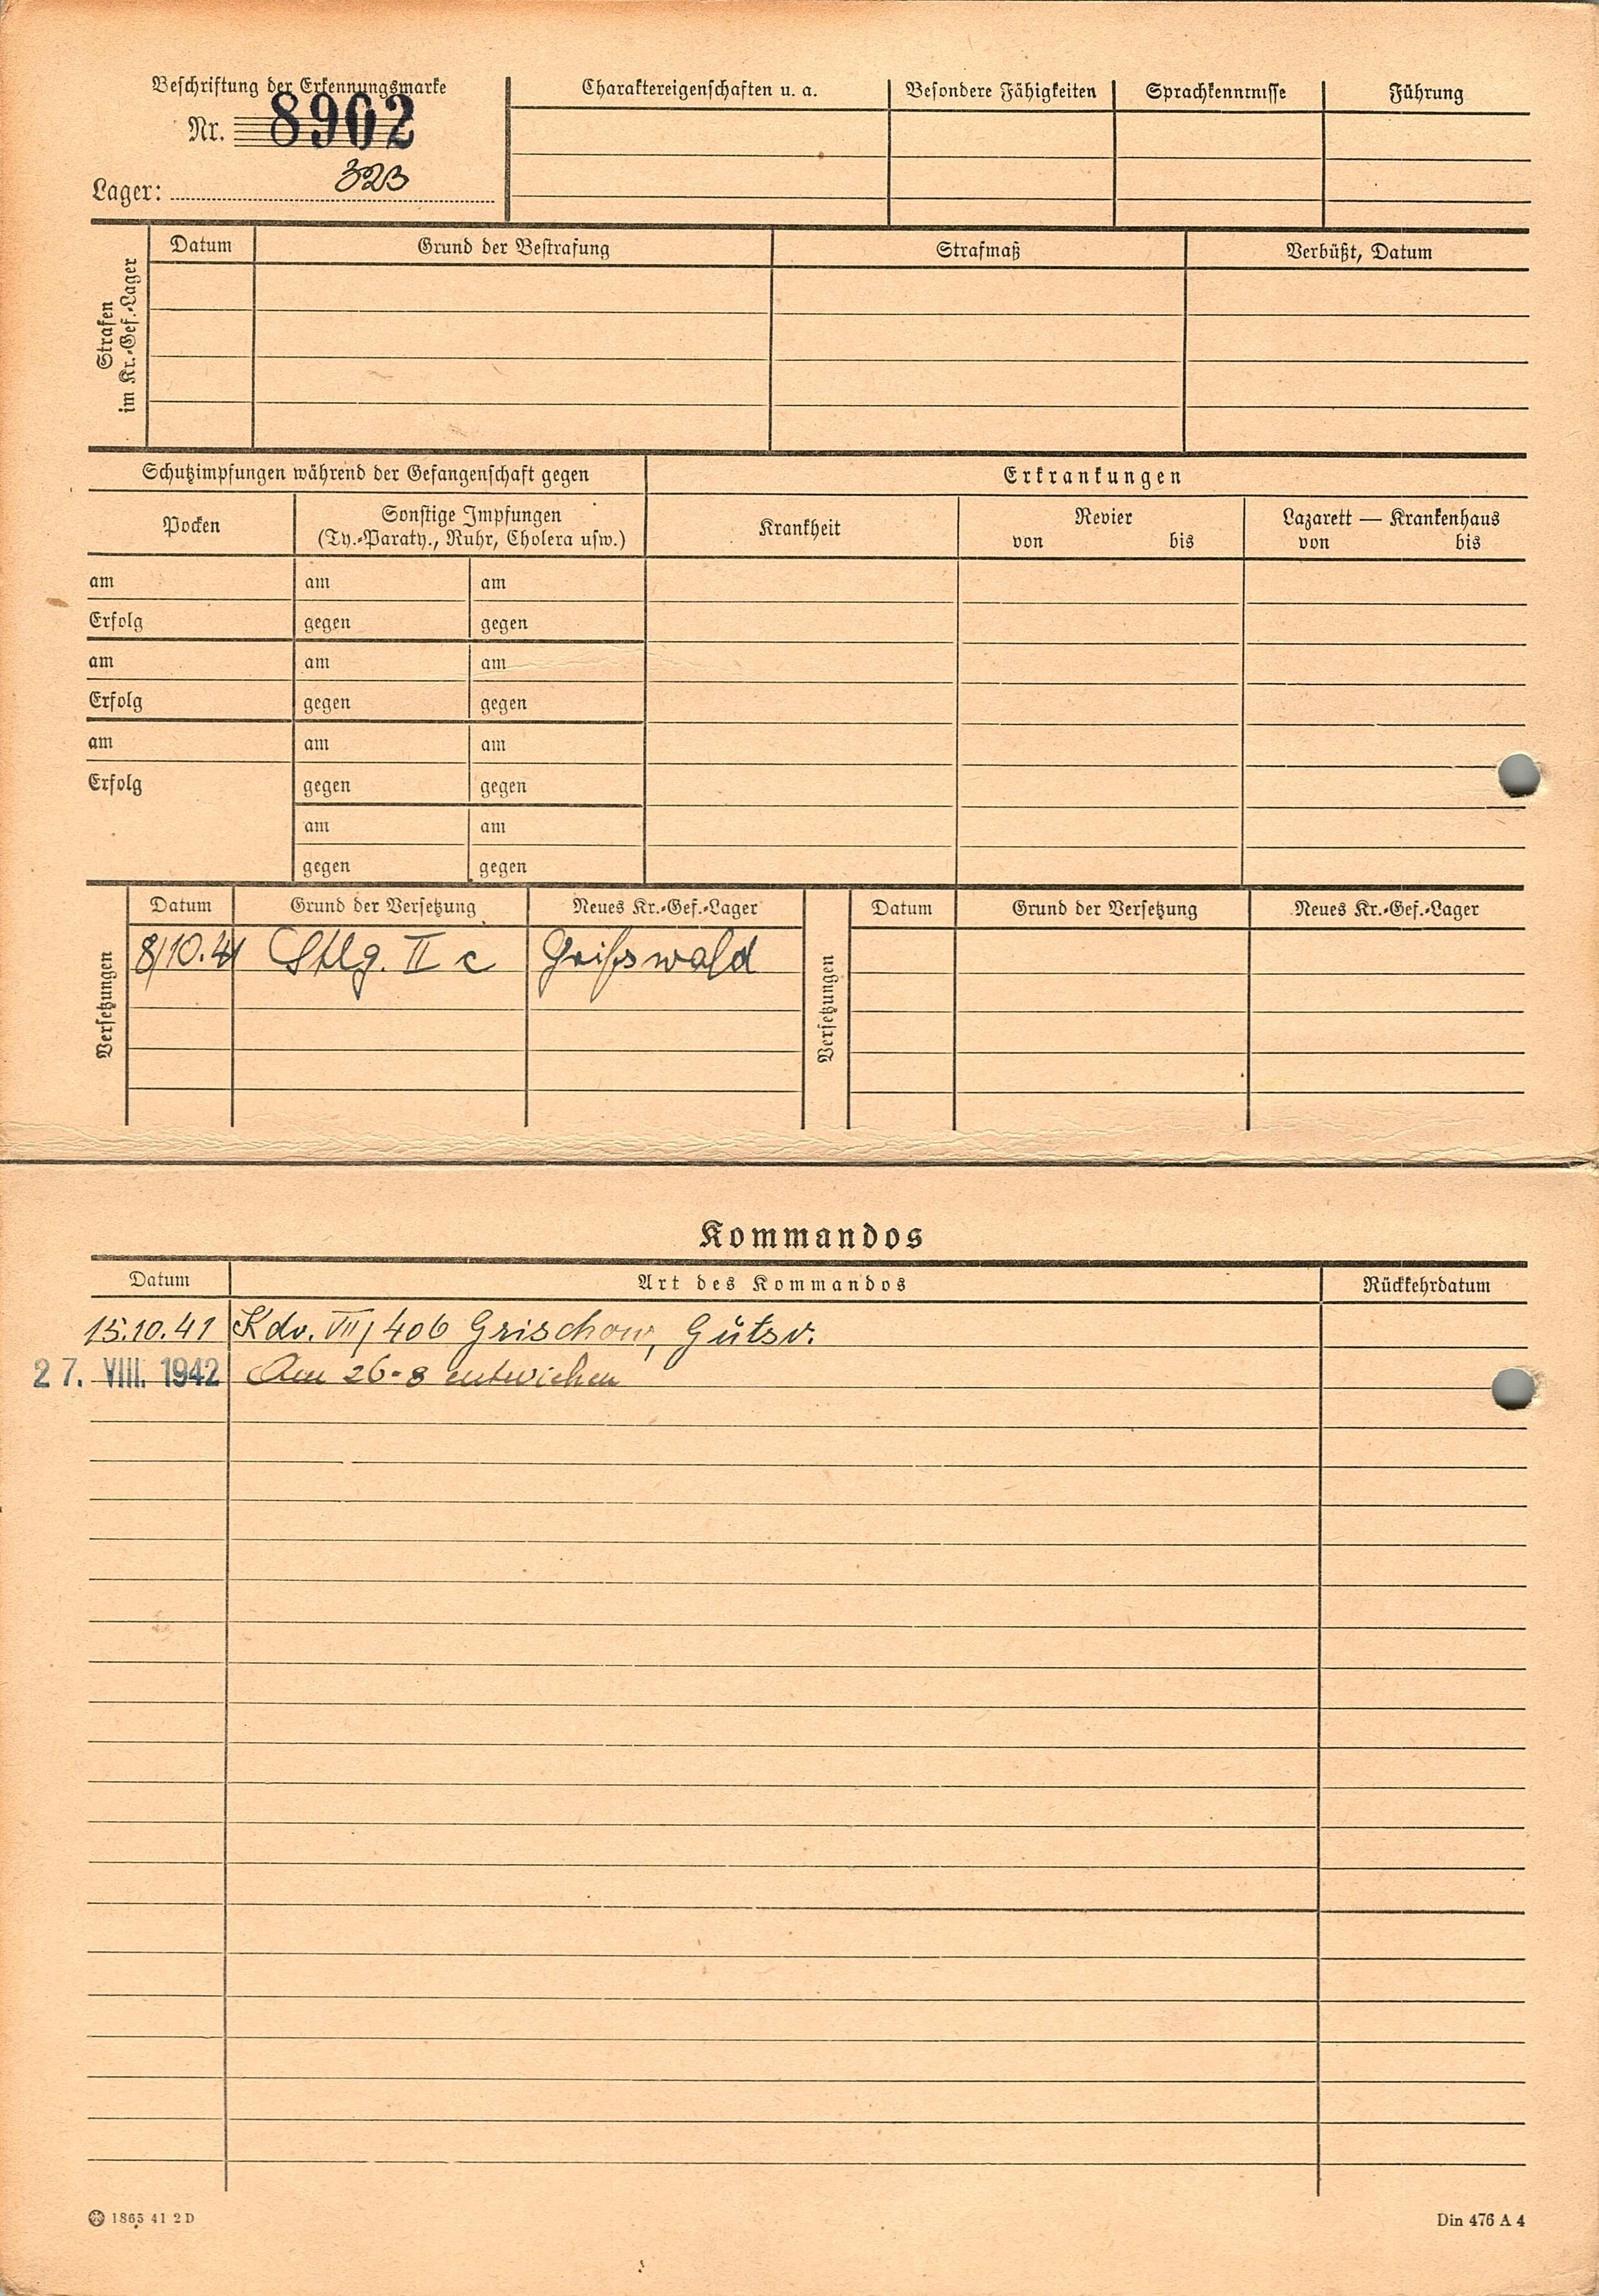 Beschriftung der Erkennungsmarke
Nr. 8902
Lager: 323
Charaktereigenschaften u. a. Besondere Fähigkeiten Sprachkenntnisse Führung
Strafen
im Kr.-Gef.-Lager
Datum Grund der Bestrafung Strafmaß Verbüßt, Datum
Schutzimpfungen während der Gefangenschaft gegen
Erkrankungen
Pocken
Sonstige Impfungen
(Ty.-Paraty., Ruhr, Cholera usw.)
Krankheit
Revier
von bis
Lazarett — Krankenhaus
von bis
am am am
Erfolg gegen gegen
am am am
Erfolg gegen gegen
am am am
Erfolg gegen gegen
am am
gegen gegen
Versetzungen
Datum Grund der Versetzung Neues Kr.-Gef.-Lager
8/10.41 Stlg. II c Greifswald
Versetzungen
Datum Grund der Versetzung Neues Kr.-Gef.-Lager
Kommandos
Datum Art des Kommandos Rückkehrdatum
15.10.41 Kdo. VII/406 Grischow, Gutsv.
27. VIII. 1942 Am 26-8 entwichen
1865 41 2 D
Din 476 A 4